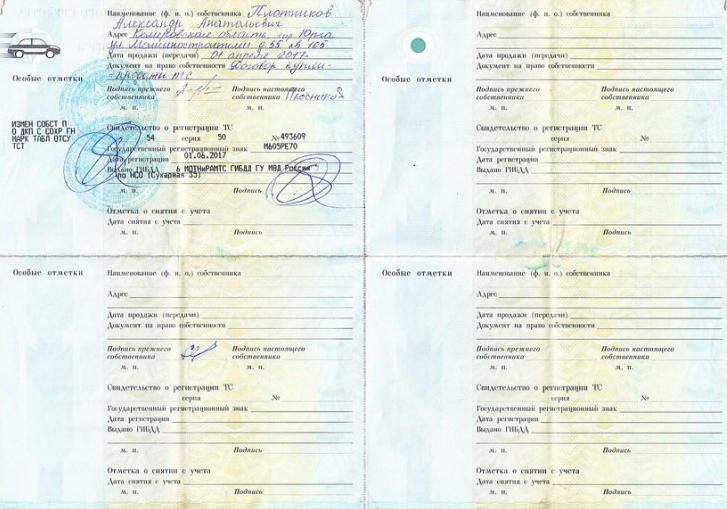 Наименование (ф. и. о.) собственника Плотников
Александр Анатольевич
Адрес Кемеровская область, гор Юрга
ул Машиностроителей д.55 кв 105
Дата продажи (передачи) 01 апреля 2017
Документ на право собственности Договор купли-
продажи ТС
Особые отметки
Подпись прежнего собственника
Подпись настоящего собственника
м. п.
м. п.
ИЗМЕН СОБСТ П
О ДКП С СОХР ГН
МАРК ТАБЛ ОТСУ
ТСТ
Свидетельство о регистрации ТС
54 серия 50 № 493609
Государственный регистрационный знак М605РЕ70
Дата регистрации 01.06.2017
Выдано ГИБДД 6 МОТНиРАМТС ГИБДД ГУ МВД России
по НСО (Сухарная 35)
м. п. Подпись
Отметка о снятии с учета
Дата снятия с учета
м. п. Подпись
Наименование (ф. и. о.) собственника
Адрес
Дата продажи (передачи)
Документ на право собственности
Особые отметки
Подпись прежнего собственника
Подпись настоящего собственника
м. п.
м. п.
Свидетельство о регистрации ТС
серия №
Государственный регистрационный знак
Дата регистрации
Выдано ГИБДД
м. п. Подпись
Отметка о снятии с учета
Дата снятия с учета
м. п. Подпись
Особые отметки
Наименование (ф. и. о.) собственника
Адрес
Дата продажи (передачи)
Документ на право собственности
Подпись прежнего собственника
Подпись настоящего собственника
м. п.
м. п.
Свидетельство о регистрации ТС
серия №
Государственный регистрационный знак
Дата регистрации
Выдано ГИБДД
м. п. Подпись
Отметка о снятии с учета
Дата снятия с учета
м. п. Подпись
Особые отметки
Наименование (ф. и. о.) собственника
Адрес
Дата продажи (передачи)
Документ на право собственности
Подпись прежнего собственника
Подпись настоящего собственника
м. п.
м. п.
Свидетельство о регистрации ТС
серия №
Государственный регистрационный знак
Дата регистрации
Выдано ГИБДД
м. п. Подпись
Отметка о снятии с учета
Дата снятия с учета
м. п. Подпись